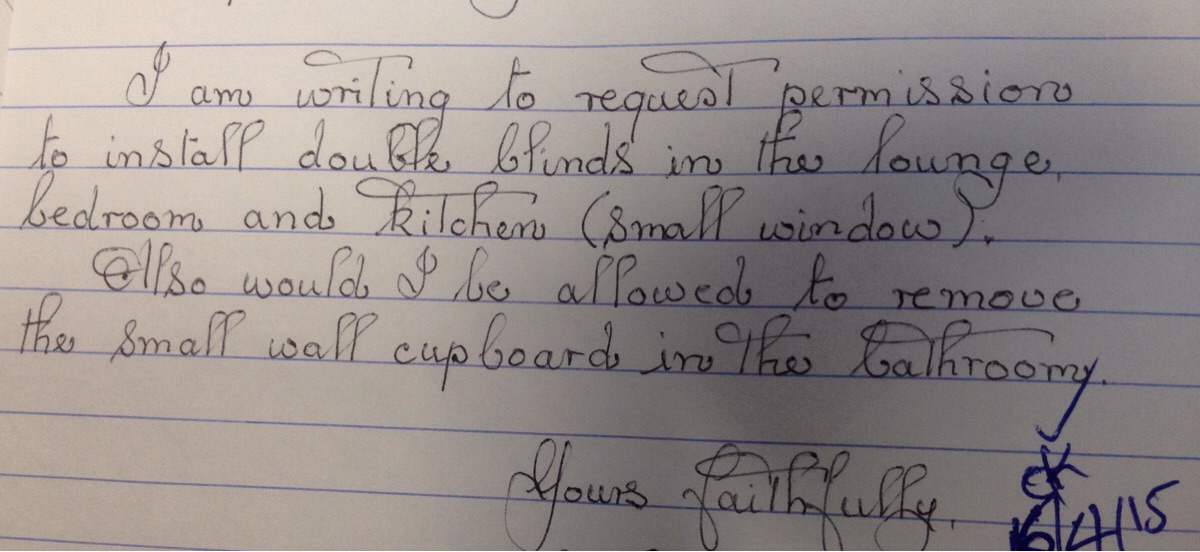 I am writing to request permission
to install double blinds in the lounge,
bedroom and kitchen (small window).
Also would I be allowed to remove
the small wall cupboard in the bathroom.
Yours faithfully,
OK
16/4/15